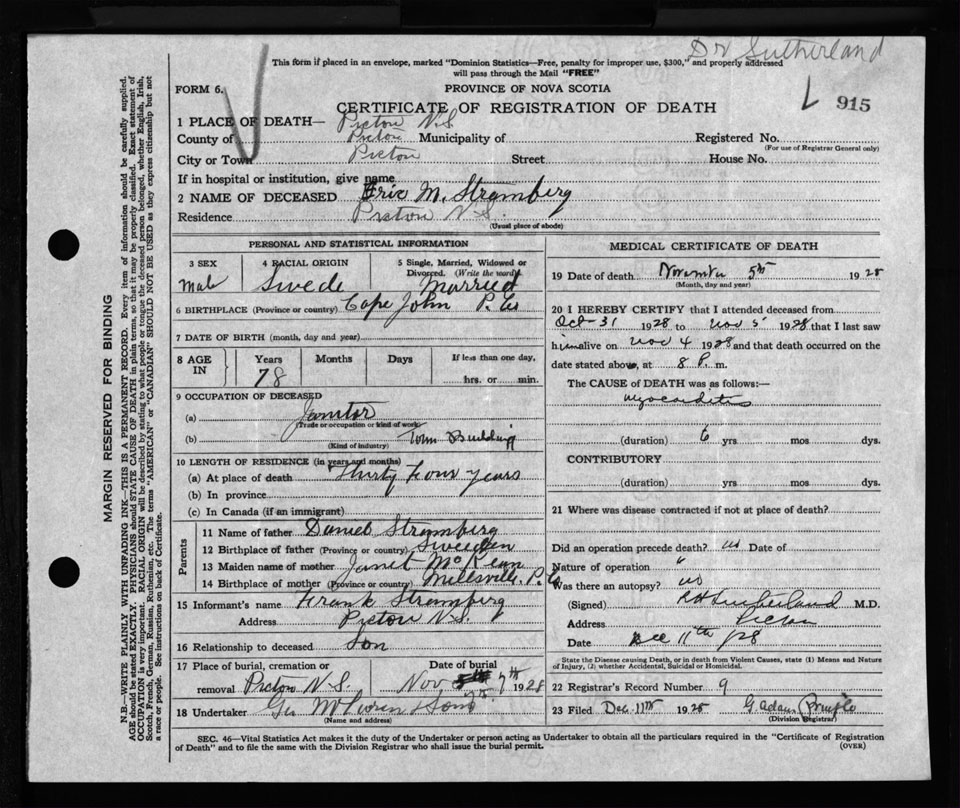 Dr Sutherland
This form if placed in an envelope, marked "Dominion Statistics—Free, penalty for improper use, $300," and properly addressed
will pass through the Mail "FREE"
FORM 6.
PROVINCE OF NOVA SCOTIA
CERTIFICATE OF REGISTRATION OF DEATH
L 915
1 PLACE OF DEATH— Pictou N.S
County of Pictou Municipality of Registered No.
(For use of Registrar General only)
City or Town Pictou Street House No.
If in hospital or institution, give name
2 NAME OF DECEASED Eric M. Stromberg
Residence Pictou N.S.
(Usual place of abode)
PERSONAL AND STATISTICAL INFORMATION
3 SEX
Male
4 RACIAL ORIGIN
Swede
5 Single, Married, Widowed or
Divorced. (Write the word)
Married
6 BIRTHPLACE (Province or country) Cape John P. Co
7 DATE OF BIRTH (month, day and year)
8 AGE IN
Years Months Days If less than one day,
78 hrs. or min.
9 OCCUPATION OF DECEASED
(a) Janitor
(Trade or occupation or kind of work)
(b) Town Building
(Kind of industry)
10 LENGTH OF RESIDENCE (in years and months)
(a) At place of death Thirty four years
(b) In province
(c) In Canada (if an immigrant)
Parents
11 Name of father Daniel Stromberg
12 Birthplace of father (Province or country) Sweeden
13 Maiden name of mother Janet McKean
14 Birthplace of mother (Province or country) Millsville, P. Co
15 Informant's name Frank Stromberg
Address Pictou N.S.
16 Relationship to deceased Son
17 Place of burial, cremation or Date of burial
removal Pictou N.S. Nov 7th 1928
18 Undertaker Geo & Sons
(Name and address)
MEDICAL CERTIFICATE OF DEATH
19 Date of death November 5th 1928
(Month, day and year)
20 I HEREBY CERTIFY that I attended deceased from
Oct-31 1928 to Nov 5 1928 that I last saw
him alive on Nov 4 1928 and that death occurred on the
date stated above, at 8 P. m.
The CAUSE of DEATH was as follows:—
Myocarditis
(duration) 6 yrs mos dys.
CONTRIBUTORY
(duration) yrs. mos. dys.
21 Where was disease contracted if not at place of death?
Did an operation precede death? no Date of
Nature of operation "
Was there an autopsy? no
(Signed) Sutherland M.D.
Address Pictou
Date Dec 11th /28
State the Disease causing Death, or in death from Violent Causes, state (1) Means and Nature
of Injury, (2) whether Accidental, Suicidal or Homicidal.
22 Registrar's Record Number 9
23 Filed Dec. 11th 1928 G. Adam Pringle
(Division Registrar)
SEC. 46—Vital Statistics Act makes it the duty of the Undertaker or person acting as Undertaker to obtain all the particulars required in the "Certificate of Registration
of Death" and to file the same with the Division Registrar who shall issue the burial permit.
(OVER)
MARGIN RESERVED FOR BINDING
N.B.—WRITE PLAINLY WITH UNFADING INK—THIS IS A PERMANENT RECORD. Every item of information should be carefully supplied.
AGE should be stated EXACTLY. PHYSICIANS should STATE CAUSE OF DEATH in plain terms, so that it may be properly classified. Exact statement of
OCCUPATION is very important. RACIAL ORIGIN will be described by stating to what people or tongue the deceased person belonged, whether English, Irish,
Scotch, French, German, Russian, Ruthenian, etc. The terms "AMERICAN" or "CANADIAN" SHOULD NOT BE USED as they express citizenship but not
a race or people. See instructions on back of Certificate.